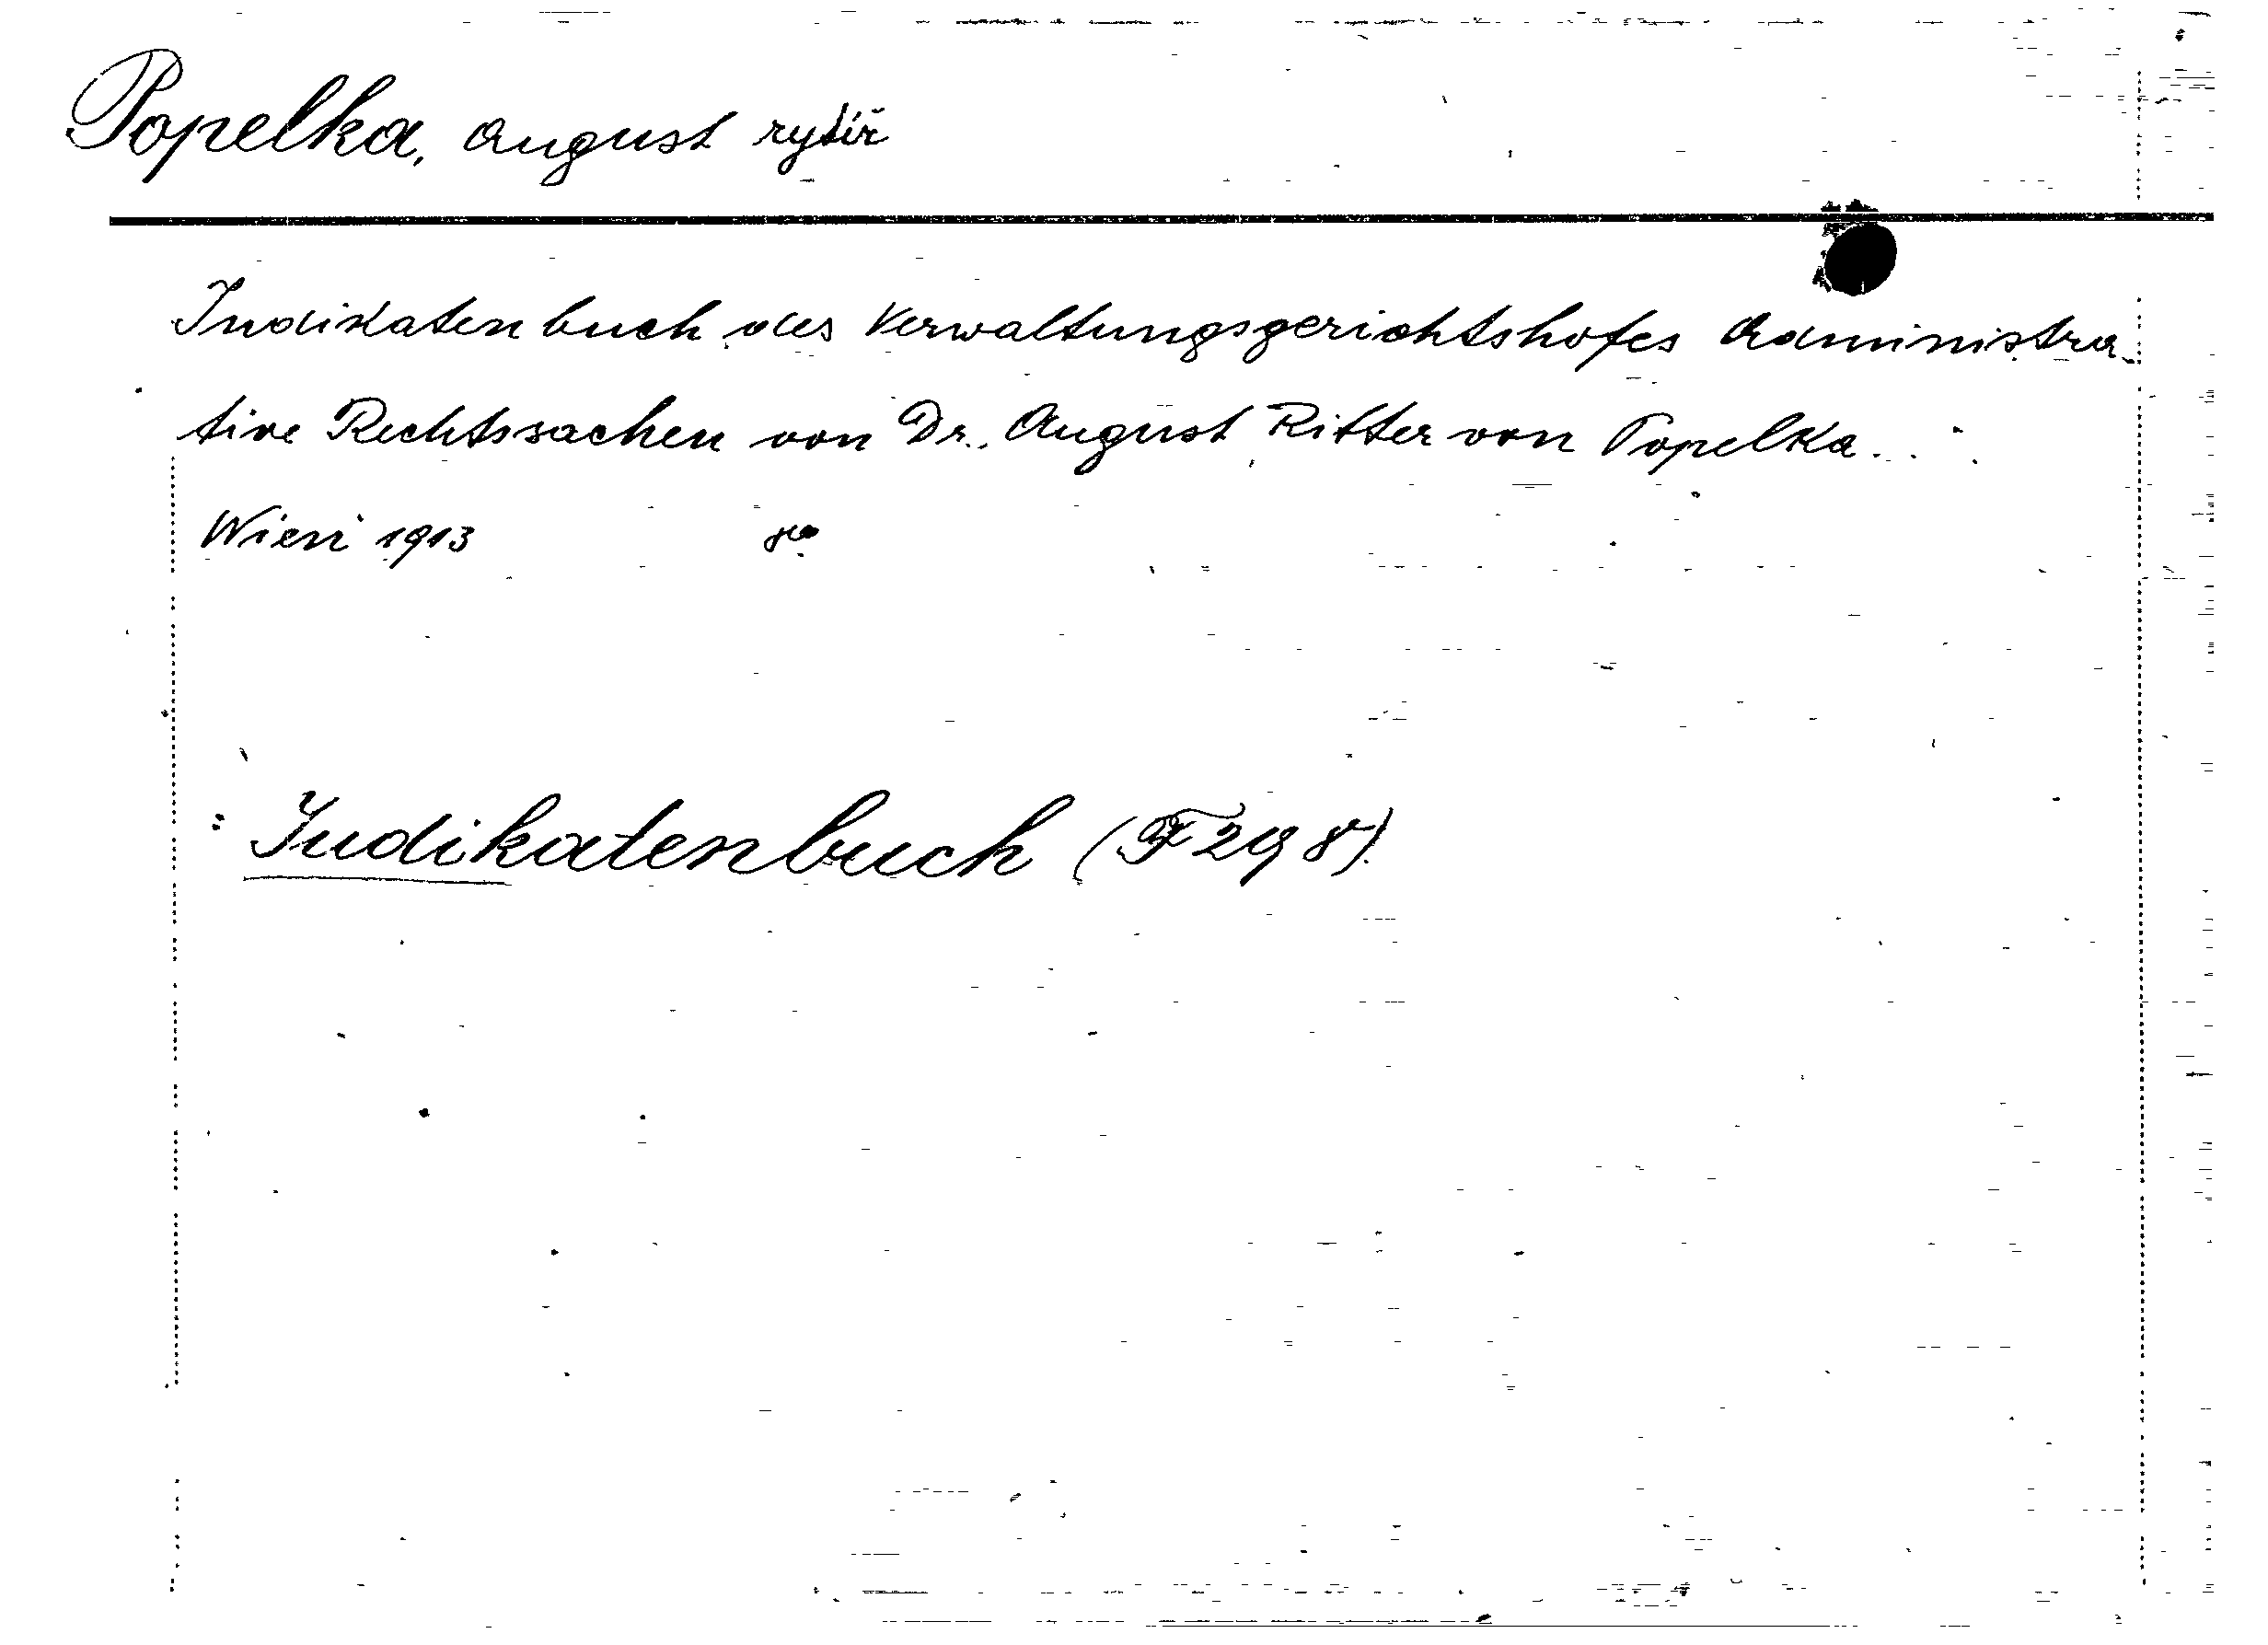 Popelka, August rytíř
Judikatenbuch des Verwaltungsgerichtshofes Administra-
tive Rechtssachen von Dr. August Ritter von Popelka...
Wien 1913 8°
Judikatenbuch (F 298)